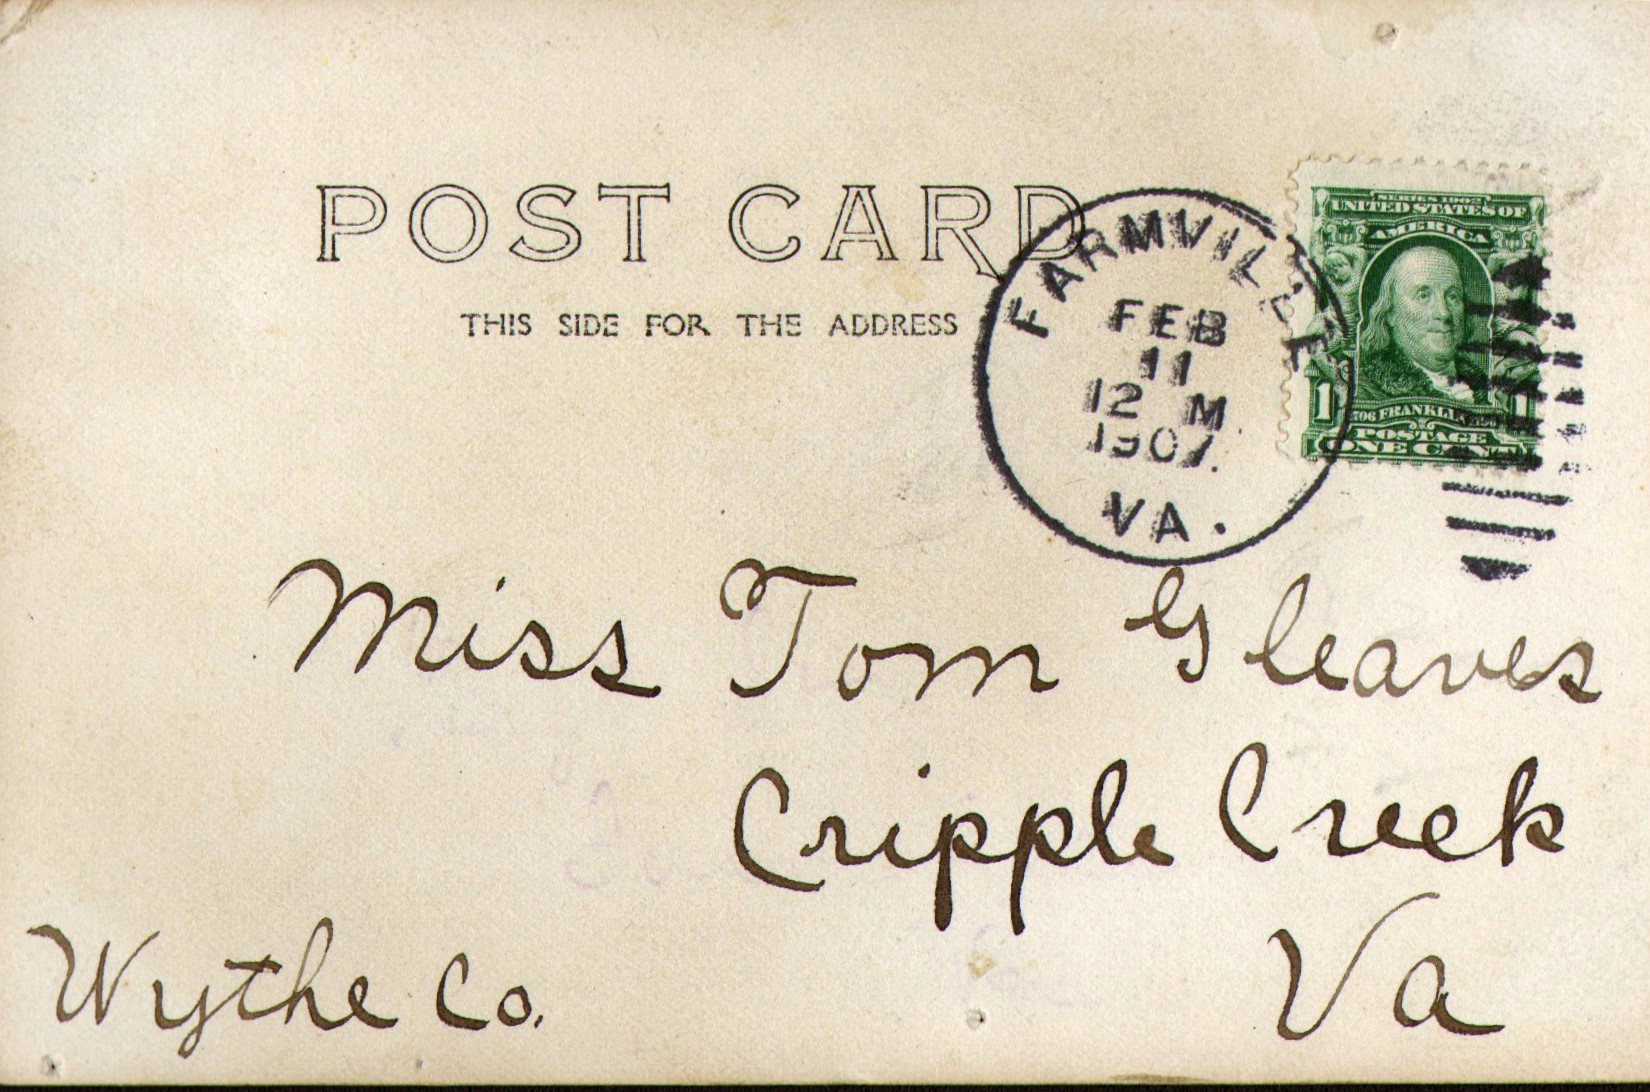 POST CARD
THIS SIDE FOR THE ADDRESS
FARMVILLE
FEB
11
12 M
1907.
VA.
SERIES 1902
UNITED STATES OF
AMERICA
1 1
FRANKLIN
POSTAGE
ONE CENT
Miss Tom Gleaves
Cripple Creek
Va
Wythe Co.